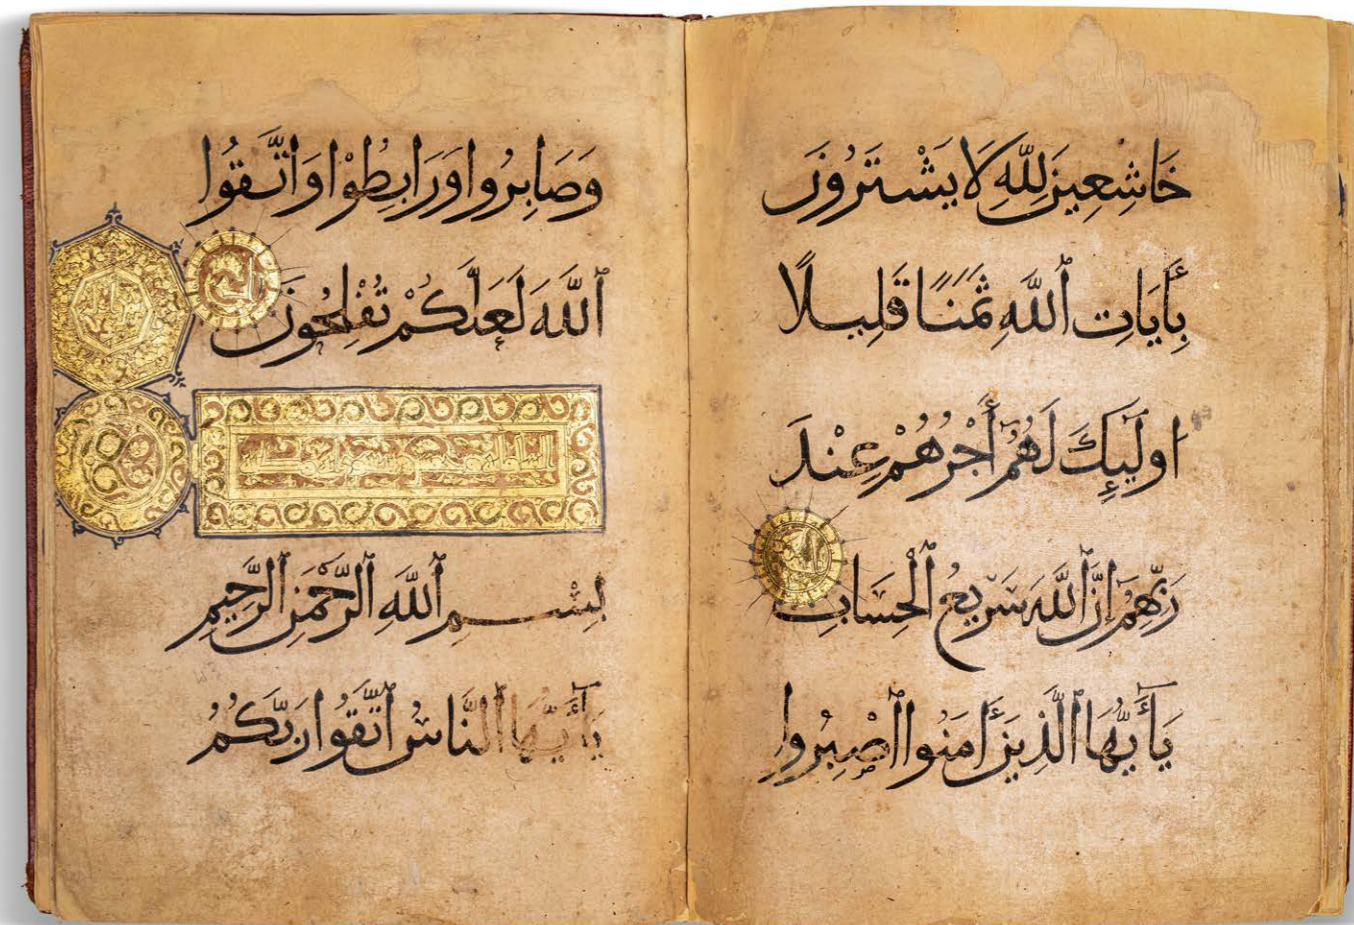 خَاشِعِينَ لِلَّهِ لَا يَشْتَرُونَ
بِأَيَاتِ ٱللَّهِ ثَمَنًا قَلِيلًا
اولَيِكَ لَهُمُۥٓ أَجْرُهُمْ عِنْدَ
رَبِّهِمُۥٓ إِنَّ ٱللَّهَ سَرِيعُ ٱلْحِسَابِ
يَٰٓأَيُّهَا ٱلَّذِينَ ءَامَنُوا ٱصْبِرُوا
وَصَابِرُوا وَرَابِطُوْا وَٱتَّقُوا
ٱللَّهَ لَعَلَّكُمْ تُفْلِحُونَ
بِسْمِ ٱللَّهِ ٱلرَّحْمَٰنِ ٱلرَّحِيمِ
يَٰٓأَيُّهَا ٱلنَّاسُ ٱتَّقُوا رَبَّكُمُ